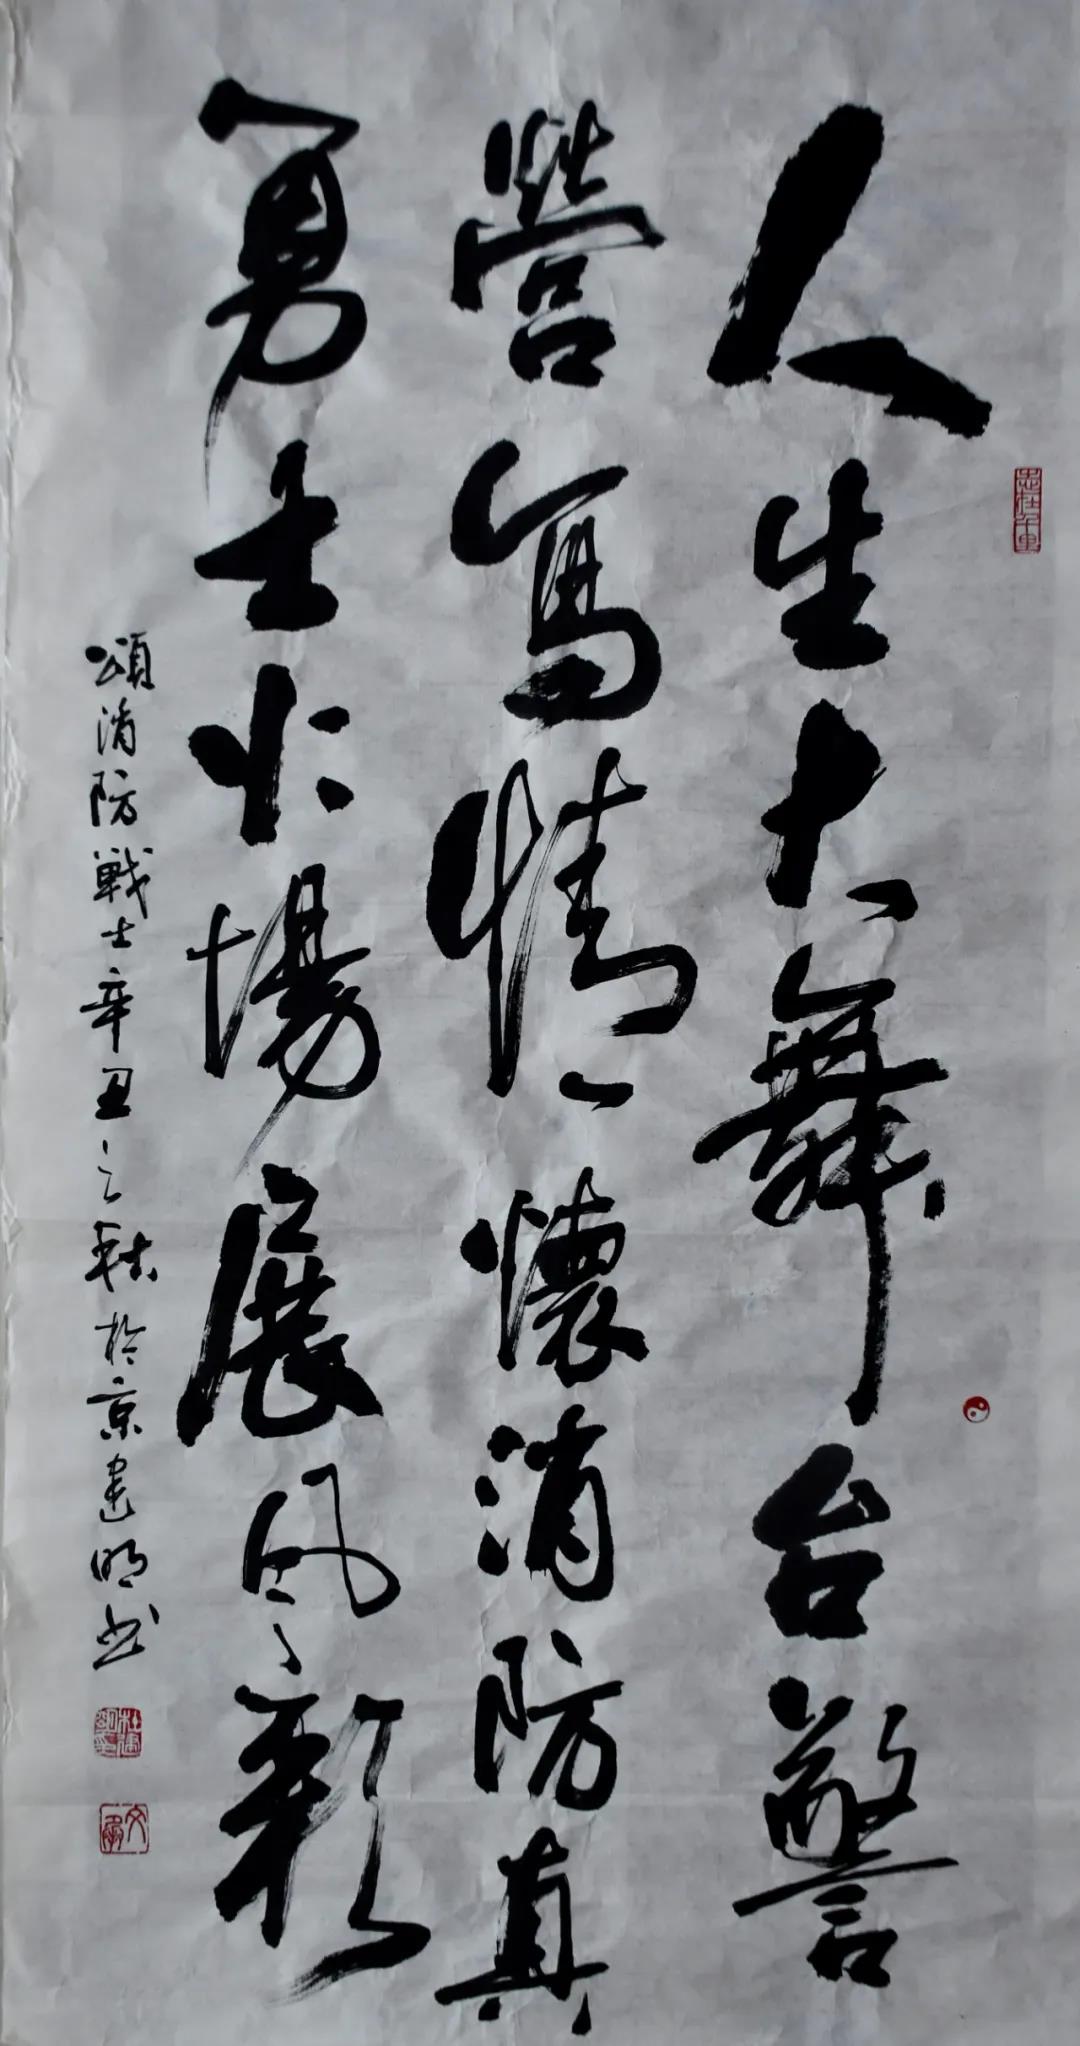 人生大舞台警
營寫情懷消防真
勇士火場展風彩
頌消防戰士辛丑之秋於京建明书